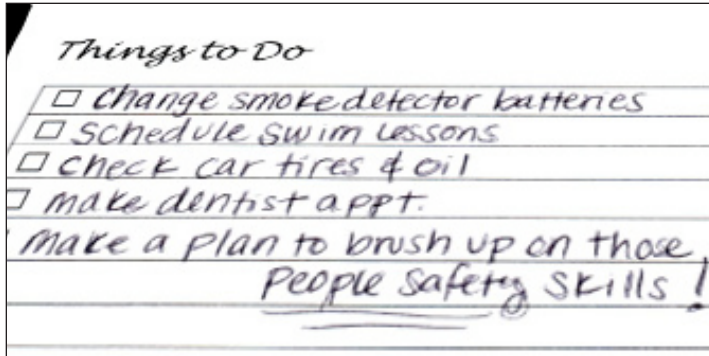 Things to Do
Change smoke detector batteries
Schedule swim lessons
Check car tires & oil
make dentist appt.
Make a plan to brush up on those
People Safety Skills!